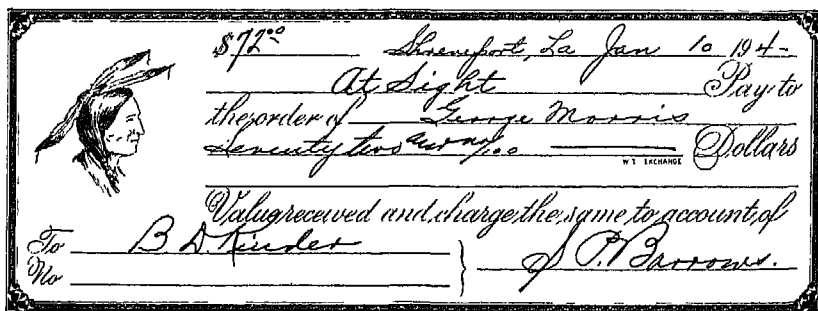 $72.00 Shreveport, La Jan 10 194-
At Sight Pay to
the order of George Morris
Seventy two and no/100 Dollars
W T EXCHANGE
Value received and charge the same to account of
To B. D. Kinder
No S. P. Barrows.